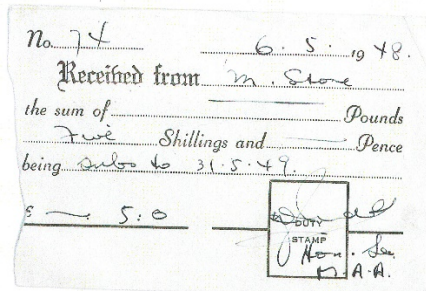 No. 74 6. 5. 1948.
Received from M. Stone
the sum of Pounds
Five Shillings and — Pence
being subs to 31.5.49.
£ — 5:0
DUTY
STAMP
Hon. Sec.
M.A.A.